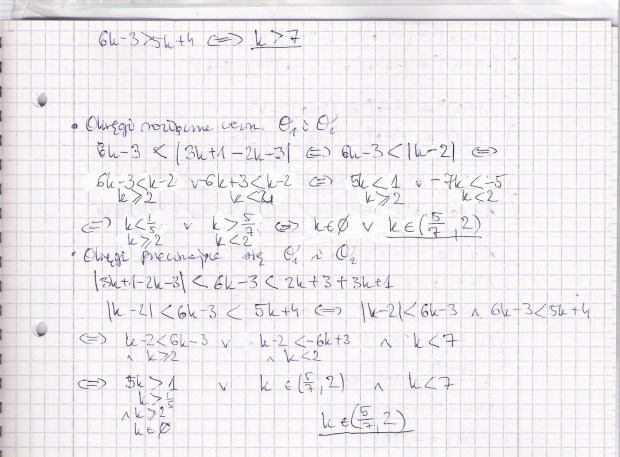 6k-3>5k+4 ⟺ k>7
• Okręgi rozłączne wewn. O₁ i O₂
6k-3 < |3k+1-2k-3| ⟺ 6k-3<|k-2| ⟺
6k-3<k-2 ∨ -6k+3<k-2 ⟺ 5k<1 ∨ -7k<-5
k⩾2 k<2 k⩾2 k<2
⟺ k<1/5 ∨ k>5/7 ⟺ k∈∅ ∨ k∈(5/7, 2)
k⩾2 k<2
• Okręgi przecinające się O₁ i O₂
|3k+1-2k-3| < 6k-3 < 2k+3+3k+1
|k-2| < 6k-3 < 5k+4 ⟺ |k-2|<6k-3 ∧ 6k-3<5k+4
⟺ k-2<6k-3 ∨ k-2<-6k+3 ∧ k<7
∧ k⩾2 ∧ k<2
⟺ 5k>1 ∨ k∈(5/7, 2) ∧ k<7
k>1/5
∧ k>2
k∈∅ k∈(5/7, 2)